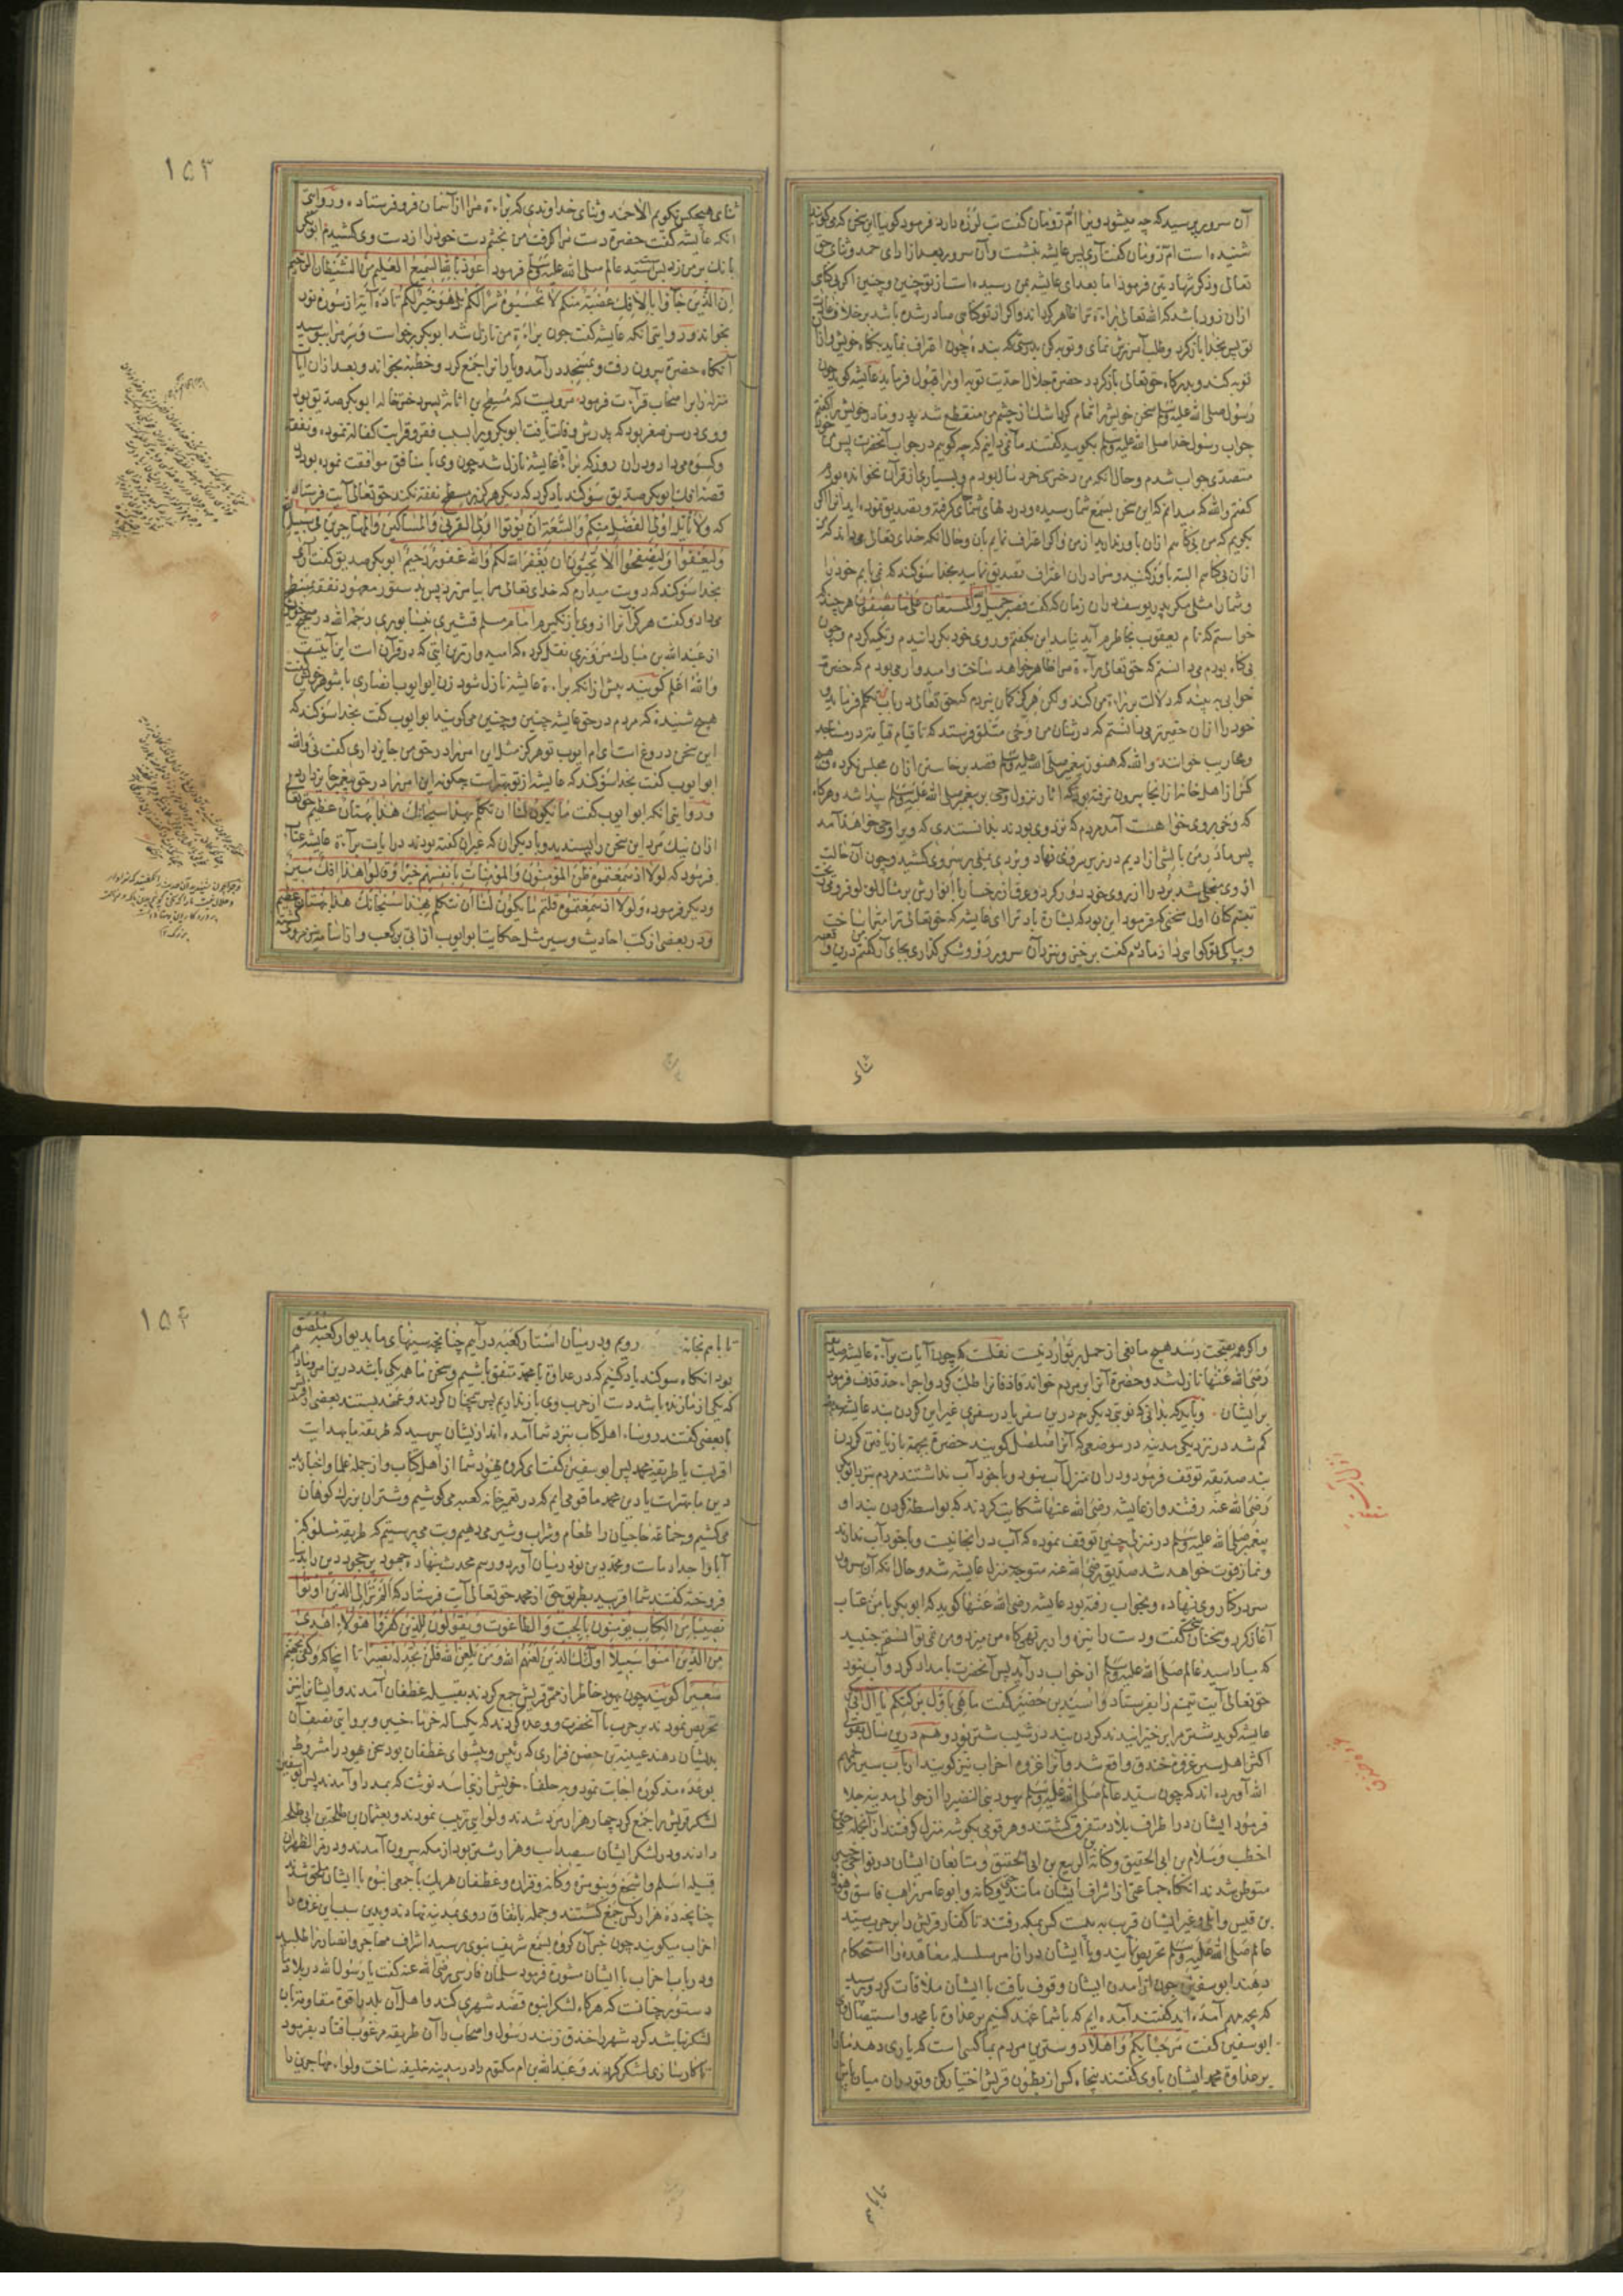 آن سرور پرسید که چه میشود ویرا ام رومان کفت تب لرزه دارد فرمود کویا این سخن که می کویند
شنیده است ام رومان کفت آری پس عایشه بنشست وآن سرور بعد از ادای حمد وثنای حق
تعالی وذکر شهادتین فرمود اما بعد ای عایشه بمن رسیده است از تو چنین وچنین اکر بی کناهی
ازان زود باشد که الله تعالی براءة ترا ظاهر کرداند واکر از تو کناهی صادر شده باشد برخلاف عادت
تو پس بخدا باز کرد وطلب آمرزش نمای وتوبه کن بدرستی که بنده چون اعتراف نماید بکناه خویش وازان
توبه کند وبدرکاه حق تعالی باز کردد حضرة جلال احدیت توبه اورا قبول فرماید عایشه کوید چون
رسول صلی الله علیه وسلم سخن خویش را تمام کرد اشک از چشم من منقطع شد پدر ومادر خویش را کفتم
جواب رسول خدا صلی الله علیه وسلم بکویید کفتند ما نمی دانیم که چه کوییم در جواب آنحضرت پس من خود
متصدی جواب شدم وحال آنکه من دختری خرد سال بودم وبسیاری از قرآن نخوانده بودم
کفتم والله که میدانم که این سخن بسمع شما رسیده ودر دلهای شما جای کرفته وتصدیق نموده اید آنرا اکر
بکویم که من بی کناهم ازان باور ندارید از من واکر اعتراف نمایم بآن وحال آنکه خدای تعالی می داند که من
ازان بی کناهم البته باور کنید ومرا دران اعتراف تصدیق نمایید بخدا سوکند که نمی یابم خود را
وشما را مثلی مکر پدر یوسف دران زمان که کفت فصبر جمیل والله المستعان علی ما تصفون هر چند
خواستم که نام یعقوب بخاطرم آید نیامد این بکفتم وروی خود بکردانیدم وتکیه کردم وچون
بی کناه بودم می دانستم که حق تعالی براءة مرا ظاهر خواهد ساخت وامیدوار می بودم که حضرة
خوابی به بیند که دلالت بر براءة من کند ولکن هرکز کمان نبردم که حق تعالی در باب من تکلم فرماید و
خود را ازان حقیرتر می دانستم که در شان من وحی متلو فرستد که تا قیام قیامت در مساجد
ومحاریب خوانند والله که هنوز پیغمبر صلی الله علیه وسلم قصد برخاستن ازان مجلس نکرده وهیچ
کس از اهل خانه از انجا بیرون نرفته بود که آثار نزول وحی بر پیغمبر صلی الله علیه وسلم پیدا شد وهرکاه
که وحی بروی خواست آمد مردم که نزد وی بودند بدانستندی که ویرا وحی خواهد آمد
پس مادر من بالشی از ادیم در زیر سر وی نهاد وبردی یمنی بر سر وی کشید وچون آن حالت
از وی منجلی شد برد را از روی خود دور کرد وعرق از رخسار با انوارش بر مثال لؤلؤ فرو می ریخت
تبسم کنان اول سخنی که فرمود این بود که بشارة باد ترا ای عایشه که حق تعالی ترا مبرا ساخت
وبپاکی تو کواهی داد مادرم کفت برخیز ونزد آن سرور رو وشکر کذاری بجای آر کفتم درین واقعه من
ثنای
۱۵۳
ثنای هیچکس نکویم الا حمد وثنای خداوندی که براءة مرا از آسمان فرو فرستاد ودر روایتی
آنکه عایشه کفت حضرة دست مرا کرفت من بخشم دست خود را از دست وی کشیدم ابوبکر
بانک بر من زد پس سید عالم صلی الله علیه وسلم فرمود اعوذ بالله السمیع العلیم من الشیطان الرجیم
ان الذین جاؤا بالافک عصبة منکم لا تحسبوه شرا لکم بل هو خیر لکم تا ده آیة از سورة نور
بخواند ودر روایتی آنکه عایشه کفت چون براءة من نازل شد ابوبکر برخواست وسر مرا ببوسید
آنکاه حضرة بیرون رفت وبمسجد در آمد ویارانرا جمع کرد وخطبه بخواند وبعد ازان آیات
منزله را بر اصحاب قرآءت فرمود مرویست که مسطح بن اثاثه پسر دختر خاله ابوبکر صدیق بود
ووی در سن صغر بود که پدرش وفات یافت ابوبکر ویرا بسبب فقر وقرابت کفاله نموده ونفقه
وکسوة می داد ودران روز که براءة عایشه نازل شد چون وی با منافق موافقت نموده بود در
قصه افک ابوبکر صدیق سوکند یاد کرد که دیکر هرکز بر مسطح نفقه نکند حق تعالی آیت فرستاد
که ولا یأتل اولوا الفضل منکم والسعة ان یؤتوا اولی القربی والمساکین والمهاجرین فی سبیل الله
ولیعفوا ولیصفحوا الا تحبون ان یغفر الله لکم والله غفور رحیم ابوبکر صدیق کفت آری
بخدا سوکند که دوست میدارم که خدای تعالی مرا بیامرزد پس بدستور معهود نفقه بمسطح
می داد وکفت هرکز آنرا از وی باز نکیرم امام مسلم قشیری نیشابوری رحمه الله در صحیح خویش
از عبدالله بن مبارک مروزی نقل کرده که امیدوارترین آیتی که در قرآن است این آیتست
والله اعلم کویند پیش ازانکه براءة عایشه نازل شود زن ابو ایوب انصاری با شوهر خویش کفت
هیچ شنیدهٔ که مردم در حق عایشه چنین وچنین می کویند ابو ایوب کفت بخدا سوکند که
این سخن دروغ است ای ام ایوب تو هرکز مثل این امر را در حق من جایز داری کفت نی والله
ابو ایوب کفت بخدا سوکند که عایشه از تو بهتر است چکونه این امر را در حق پیغمبر جایز دارد
ودر روایتی آنکه ابو ایوب کفت ما یکون لنا ان نتکلم بهذا سبحانک هذا بهتان عظیم حق تعالی
ازان نیک مرد این سخن را پسندید وبا دیکران که غیر آن کفته بودند در آیات براءة عایشه عتاب
فرمود که لولا اذ سمعتموه ظن المؤمنون والمؤمنات بانفسهم خیرا وقالوا هذا افک مبین
ودیکر فرمود ولولا اذ سمعتموه قلتم ما یکون لنا ان نتکلم بهذا سبحانک هذا بهتان عظیم
ودر بعضی از کتب احادیث وسیر مثل حکایت ابو ایوب از ابی بن کعب واز اسامه نیز مروی کشته
واکر همه بصحت رسد هیچ مانعی از حمل بر توارد نیست نقلست که چون آیات براءة عایشه صدیقه
رضی الله عنها نازل شد وحضرة آنرا بر مردم خواند قاذفانرا طلب کرد واجراء حد قذف فرمود
بر ایشان وباید که بدانی که نوبتی دیکر هم درین سفر یا در سفری غیر این کردن بند عایشه
کم شد در نزدیکی مدینه در موضعی که آنرا صلصل کویند حضرة بجهة باز یافتن کردن
بند صدیقه توقف فرمود ودران منزل آب نبود وبا خود آب نداشتند مردم نزد ابوبکر
رضی الله عنه رفتند واز عایشه رضی الله عنها شکایت کردند که بواسطه کردن بند او
پیغمبر صلی الله علیه وسلم در منزلی چنین توقف نموده که آب در اینجا نیست وبا خود آب ندارند
ونماز فوت خواهد شد صدیق رضی الله عنه متوجه منزل عایشه شد وحال آنکه آن سرور
سر در کنار وی نهاده وبخواب رفته بود عایشه رضی الله عنها کوید که ابوبکر با من عتاب
آغاز کرد وسخنان سخت کفت ودست را نیزه وار بر تهی کاه من میزد ومن نمی توانستم جنبید
که مبادا سید عالم صلی الله علیه وسلم از خواب در آید پس آنحضرت بامداد کرد وآب نبود
حق تعالی آیت تیمم را بفرستاد واسید بن حضیر کفت ما هی باول برکتکم یا آل ابی بکر
عایشه کوید شتر مرا برخیزانیدند کردن بند در شیب شتر بود وهم درین سال بقول
اکثر اهل سیر غزوه خندق واقع شد وآنرا غزوه احزاب نیز کویند ارباب سیر رحمهم
الله آورده اند که چون سید عالم صلی الله علیه وسلم یهود بنی النضیر را از حوالی مدینه جلا
فرمود ایشان در اطراف بلاد متفرق کشتند وهر قومی بکوشه منزل کرفتند از آنجمله حیی
اخطب وسلام بن ابی الحقیق وکنانة بن الربیع بن ابی الحقیق ومتابعان ایشان در نواحی خیبر
متوطن شدند آنکاه جماعتی از اشراف ایشان مانند حیی وکنانه وابو عامر راهب فاسق وهوذه
بن قیس وائلی وغیر ایشان قریب به بیست کس بمکه رفتند تا کفار قریش را بر حرب سید
عالم صلی الله علیه وسلم تحریض نمایند وبا ایشان دران امر سلسله معاهده را استحکام
دهند ابوسفین چون از آمدن ایشان وقوف یافت با ایشان ملاقات کرد وپرسید
که بچه مهم آمده اید کفتند آمده ایم که با شما عهد کنیم بر عداوة با محمد واستیصال وی
ابوسفین کفت مرحبا بکم واهلا دوسترین مردم بما کسی است که یاری دهد مارا
بر عداوة محمد ایشان با وی کفتند پنجاه کس از بطون قریش اختیار کن وتو دران میان باش
۱۵۴
تا با هم بخانه رویم ودر میان استار کعبه در آییم چنانچه سینهای ما بدیوار کعبه ملصق
بود آنکاه سوکند یاد کنیم که در عداوة با محمد متفق باشیم وسخن ما همه یکی باشد درین امر ومادام
که یکی از ما زنده باشد دست از حرب وی باز نداریم پس همچنان کردند وعهد بستند بعضی از قریش
با بعضی کفتند رؤساء اهل کتاب نزد شما آمده اند از یشان بپرسید که طریقه ما بهدایت
اقربست یا طریقه محمد پس ابوسفین کفت ای کروه یهود شما از اهل کتاب واز جمله علما واخبارید
دین ما بهتر است یا دین محمد ما قومی ایم که در تعمیر خانه کعبه می کوشیم وشتران بزرک کوهان
می کشیم وجماعة حاجیان را طعام وشراب وشیر می دهیم وبت می پرستیم که طریقه سلوک
آبا واجداد ماست ومحمد دین نو در میان آورده ورسم محدث بنهاده جهود بی جحود دین را بدنیا
فروخته کفتند شما اقربید بطریق حق از محمد حق تعالی آیت فرستاد که الم تر الی الذین اوتوا
نصیبا من الکتاب یؤمنون بالجبت والطاغوت ویقولون للذین کفروا هؤلاء اهدی
من الذین آمنوا سبیلا اولئک الذین لعنهم الله ومن یلعن الله فلن تجد له نصیرا تا آنجا که وکفی بجهنم
سعیرا کویند چون یهود خاطر از ممر قریش جمع کردند بقبیله غطفان آمدند وایشانرا نیز
تحریض نمودند بر حرب با آنحضرت ووعده کردند که یکساله خرماء خیبر وبروایتی نصف آن
بدیشان دهند عیینه بن حصن فزاری که رئیس وپیشوای غطفان بود سخن یهود را مشروط
بوعده مذکوره اجابت نمود وبه حلفاء خویش از بنی اسد نوشت که بمدد او آمدند پس ابوسفین
لشکر قریش را جمع کرد چهار هزار مرد شدند ولوایی ترتیب نمودند وبعثمان بن طلحة بن ابی طلحه
دادند ودر لشکر ایشان سیصد اسب وهزار شتر بود از مکه بیرون آمدند ودر مر الظهران
قبیله اسلم واشجع وبنو مره وکنانه وفزاره وغطفان هر یک با جمعی انبوه با ایشان ملحق شدند
چنانچه ده هزار کس جمع کشتند وجمله باتفاق روی بمدینه نهادند وبدین سبب این غزوه را
احزاب میکویند چون خبر آن کروه بسمع شریف نبوی رسید اشراف مهاجر وانصار را طلبید
ودر باب احزاب با ایشان مشورة فرمود سلمان فارسی رضی الله عنه کفت یا رسول الله در بلاد ما
دستور چنانست که هرکاه لشکر انبوه قصد شهری کند واهل آن بلد را قوة مقاومت آن
لشکر نباشد کرد شهر را خندق زنند رسول واصحاب را آن طریقه مرغوب افتاد بفرمود
تا کار سازی لشکر کردند وعبدالله بن ام مکتوم را در مدینه خلیفه ساخت ولواء مهاجرین را